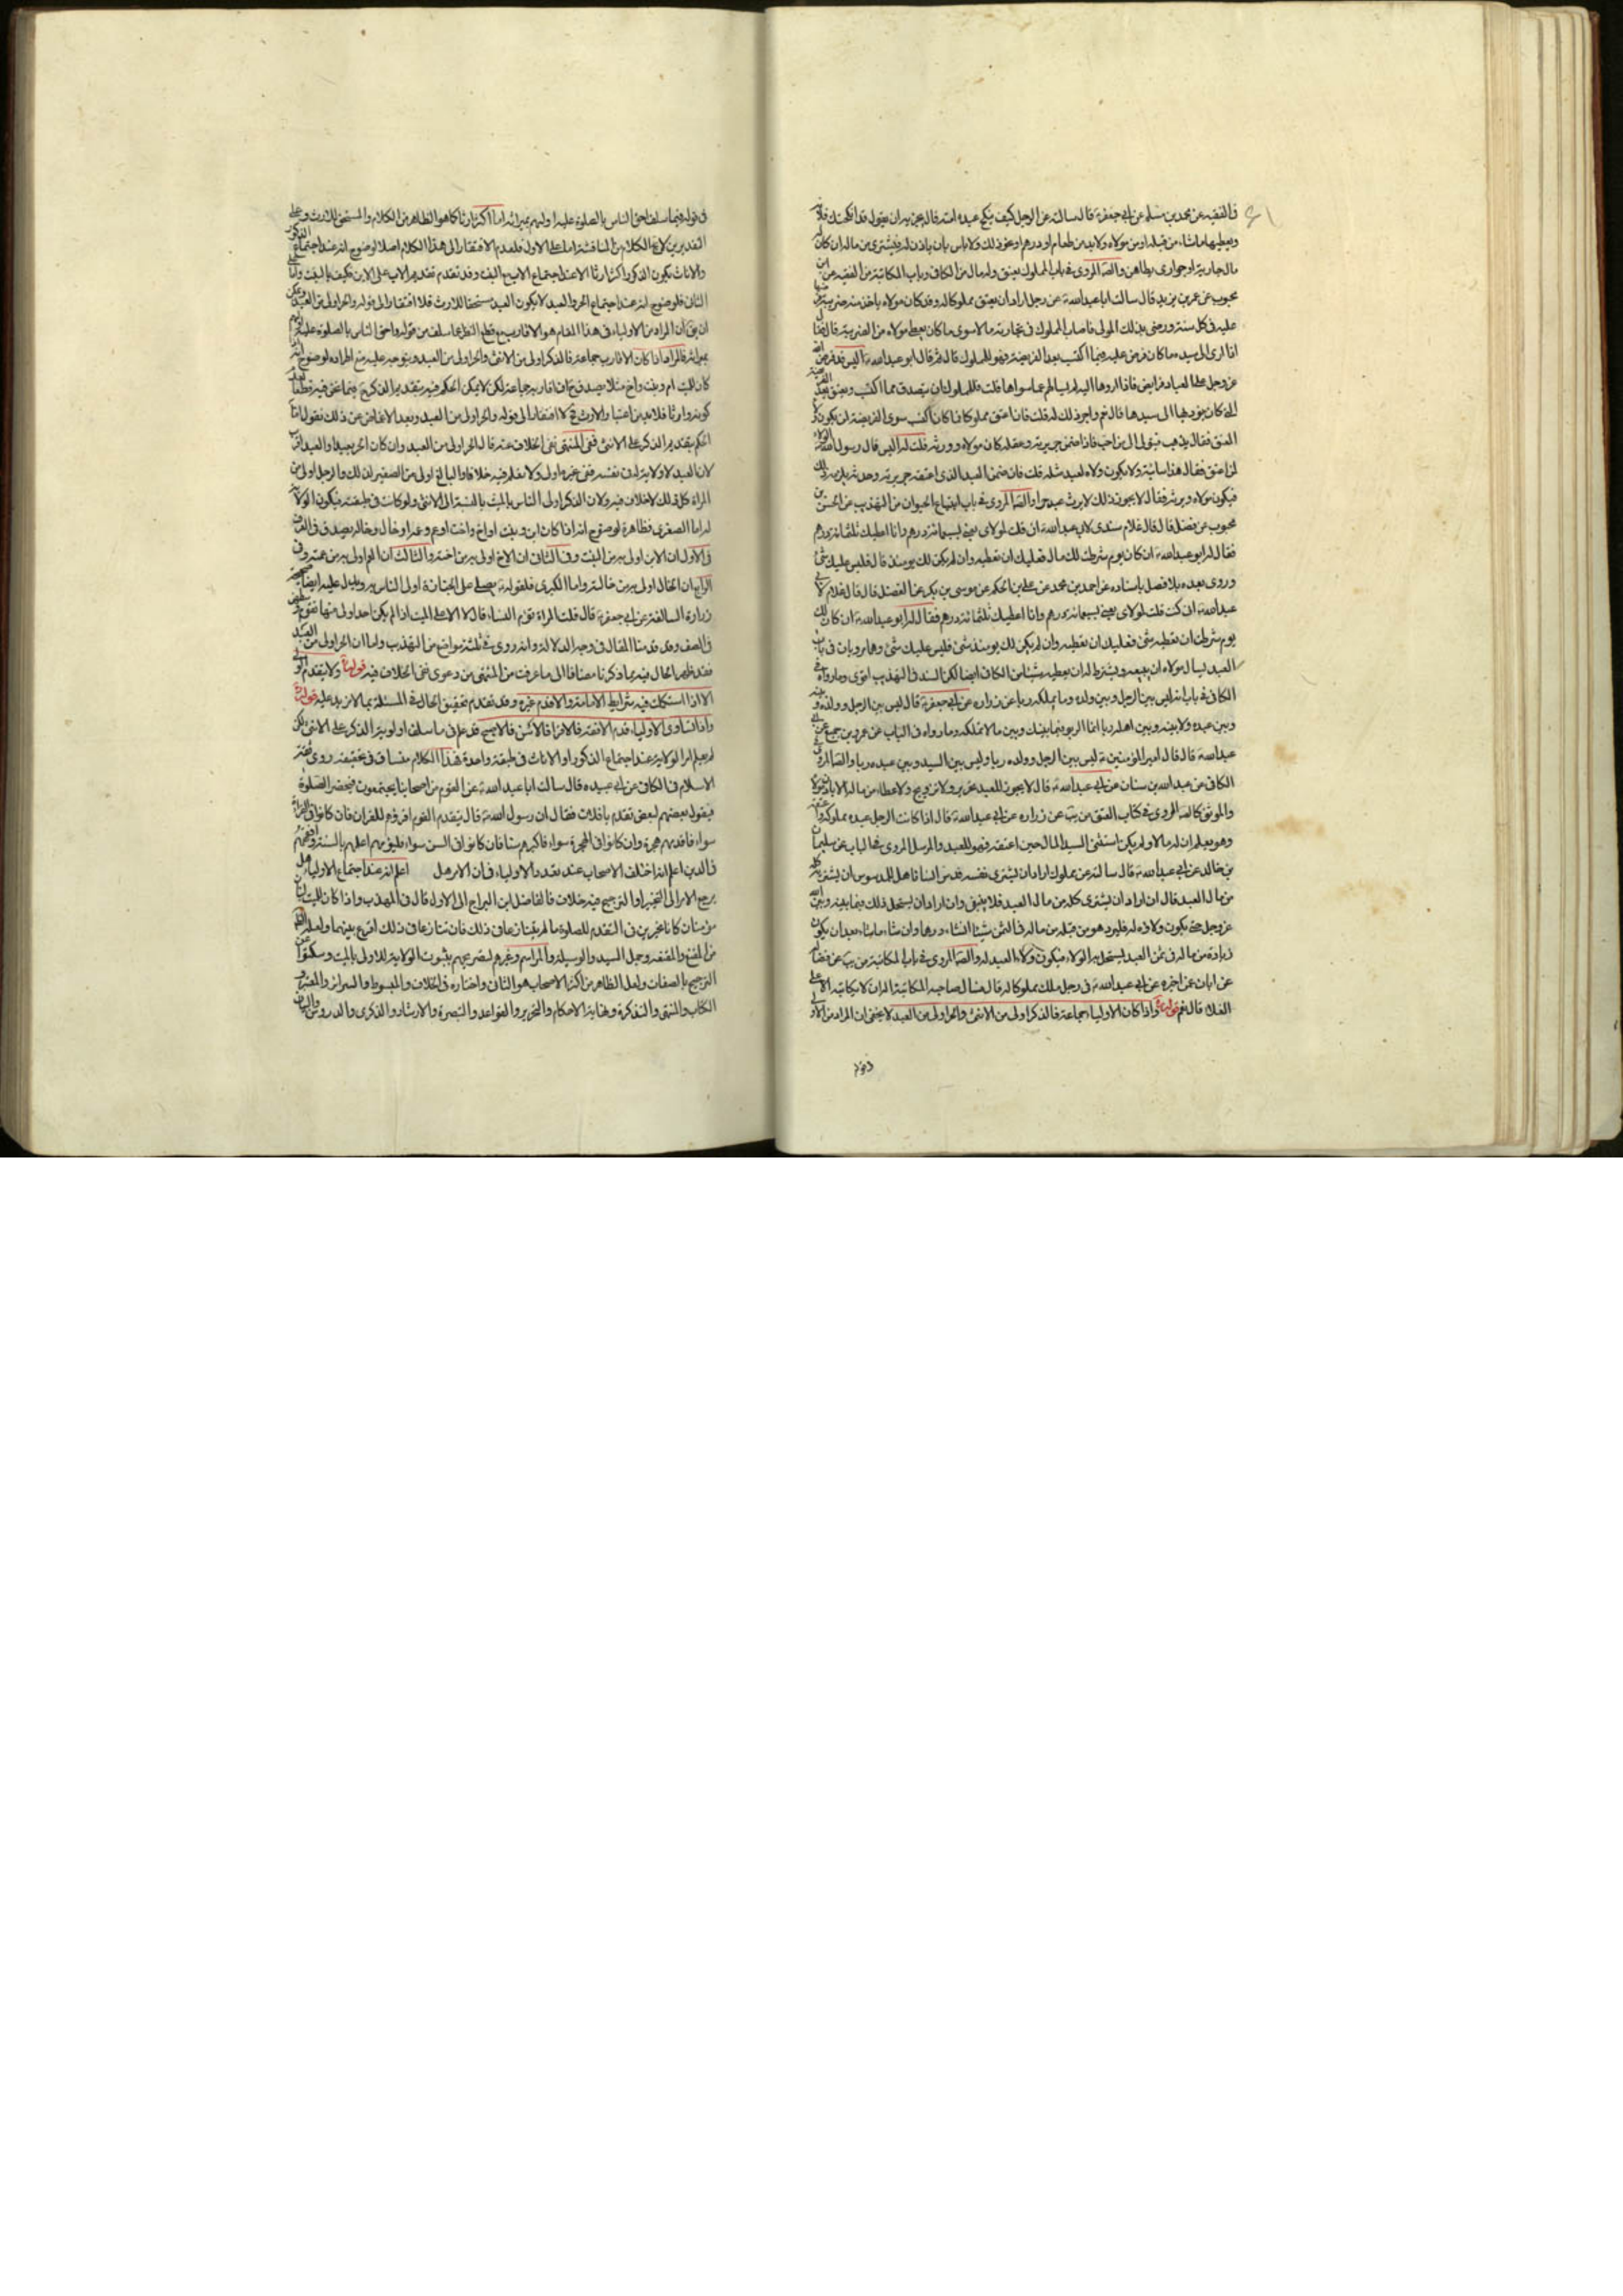 في الفقيه عن محمد بن مسلم عن ابي جعفر ع قال سالته عن الرجل كيف ينكح عبده امته قال يجزيه ان يقول قد انكحتك فلانة
ويعطيها ما شاء من قبله او من مولاه ولا بد من طعام او درهم او نحو ذلك ولا باس بان ياذن له فيشتري من ماله ان كان له
مال جارية او جواري يطاهن والصحيح المروي في باب المملوك يعتق وله مال من الكافي وباب المكاتبة من الفقيه عن ابن
محبوب عن عمر بن يزيد قال سالت ابا عبد الله ع عن رجل اراد ان يعتق مملوكا له وقد كان مولاه ياخذ منه ضريبة فرضها
عليه في كل سنة ورضي بذلك المولى فاصاب المملوك في تجارته مالا سوى ما كان يعطي مولاه من الضريبة قال فقال
اذا ادى الى سيده ما كان فرض عليه فما اكتسب بعد الفريضة فهو للمملوك قال ثم قال ابو عبد الله ع اليس قد فرض الله
عز وجل على العباد فرايض فاذا ادوها اليه لم يسالهم عما سواها قلت فللمملوك ان يتصدق مما اكتسب ويعتق بعد الفريضة
التي كان يؤديها الى سيده قال نعم واجر ذلك له قلت فان اعتق مملوكا مما كان اكتسب سوى الفريضة لمن يكون ولاء
العتق فقال يذهب فيتولى الى من احب فاذا ضمن جريرته وعقله كان مولاه وورثه قلت له اليس قال رسول الله ص الولاء
لمن اعتق فقال هذا سائبة ولا يكون ولاه لعبد مثله قلت فان ضمن العبد الذي اعتقه جريرته وحدثه يلزمه ذلك
فيكون مولاه ويرثه فقال لا يجوز ذلك لا يرث عبد حرا والصحيح المروي في باب ابتياع الحيوان من التهذيب عن الحسن بن
محبوب عن فضل قال قال غلام سندي لابي عبد الله ع اني قلت لمولاي بعني بسبعمائة درهم وانا اعطيك ثلثمائة درهم
فقال له ابو عبد الله ع ان كان يوم شرطت لك مال فعليك ان تعطيه وان لم يكن لك يومئذ مال فليس عليك شئ
وروى بعده بلا فصل باسناده عن احمد بن محمد عن علي بن الحكم عن موسى بن بكر عن الفضل قال قال غلام لابي
عبد الله ع اني كنت قلت لمولاي بعني بسبعمائة درهم وانا اعطيك ثلثمائة درهم فقال له ابو عبد الله ع ان كان لك
يوم شرطت ان تعطيه شئ فعليك ان تعطيه وان لم يكن لك يومئذ شئ فليس عليك شئ وهما مرويان في باب
العبد يسال مولاه ان يبيعه ويشترط له ان يعطيه شيئا من الكافي ايضا لكن السند في التهذيب اقوى وما رواه في
الكافي في باب انه ليس بين الرجل وبين ولده وما يملكه ربا عن زرارة عن ابي جعفر ع قال ليس بين الرجل وولده وبينه
وبين عبده ولا بينه وبين اهله ربا انما الربو فيما بينك وبين ما لا تملك وما رواه في الباب عن عمرو بن جميع عن ابي
عبد الله ع قال قال امير المؤمنين ع ليس بين الرجل وولده ربا وليس بين السيد وبين عبده ربا والصحيح المروي في
الكافي عن عبد الله بن سنان عن ابي عبد الله ع قال لا يجوز للعبد تحرير ولا تزويج ولا عطاء من ماله الا باذن مولاه
والموثق كالصحيح المروي في كتاب العتق من يب عن زرارة عن ابي عبد الله ع قال اذا كانت الرجل عبده مملوكه واعتقه
وهو يعلم ان له مالا ولم يكن استثنى السيد المال حين اعتقه فهو للعبد والمرسل المروي في الباب عن سليمان
بن خالد عن ابي عبد الله ع قال سالته عن مملوك اراد ان يشتري نفسه فدس انسانا هل للمدسوس ان يشتريه كله
من مال العبد قال ان اراد ان يشتري كله من مال العبد فلا ينبغي وان اراد ان يستحل ذلك فيما بينه وبين الله
عز وجل حتى يكون ولاؤه له فليزد هو من قبله من ماله في الثمن شيئا ان شاء درهما وان شاء ما شاء بعد ان يكون
زيادة من ماله في ثمن العبد يستحل به الولاء فيكون ولاء العبد له والصحيح المروي في باب المكاتبة من يب عن فضالة
عن ابان عمن اخبره عن ابي عبد الله ع في رجل ملك مملوكا له مال فسال صاحبه المكاتبة اله ان لا يكاتبه الا على
الغلاء قال نعم قوله واذا كان الاولياء جماعة فالذكر اولى من الانثى والحر اولى من العبد لا يخفى ان المراد من الاولياء
في قوله
في قوله فيما سلف احق الناس بالصلوة عليه اوليهم بميراثه اما اكثر ارثا كما هو الظاهر من الكلام او المستحق للارث وعلى
التقديرين لا يخ الكلام من المناقشة اما على الاول فلعدم الافتقار الى هذا الكلام اصلا لوضوح انه عند اجتماع الذكور
والاناث يكون الذكور اكثر ارثا الا عند اجتماع الاب مع البنت وقد تقدم تقديم الاب على الابن فكيف بالبنت واما على
الثاني فلوضوح انه عند اجتماع الحر والعبد لا يكون العبد مستحقا للارث فلا افتقار الى قوله والحر اولى من العبد ويمكن
ان يق ان المراد من الاولياء في هذا المقام هو الاقارب مع قطع النظر عما سلف من قوله واحق الناس بالصلوة عليه اوليهم
بميراثه فالمراد اذا كان الاقارب جماعة فالذكر اولى من الانثى والحر اولى من العبد ويتوجه عليه منع اطراده لوضوح انه اذا
كان للميت ام وبنت واخ مثلا يصدق ح ان اقاربه جماعة لكن لا يمكن الحكم فيه بتقديم الذكر ح فيما نحن فيه قطعا بعد
كونه وارثا فلا معين اعتبار الارث ح لا افتقار الى قوله والحر اولى من العبد وبعد الاغماض عن ذلك نقول اما
الحكم بتقديم الذكر على الانثى ففي المنتهى نفى الخلاف عنه قال الحر اولى من العبد وان كان الحر بعيدا والعبد اقرب
لان العبد لا ولاية له في نفسه ففي غيره اولى ولا نعلم فيه خلافا والبالغ اولى من الصغير لذلك والرجل اولى من
المراة كل ذلك لا خلاف فيه ولان الذكر اولى الناس بالميت بالنسبة الى الانثى ولو كانت في طبقته فيكون الولاية
له اما الصغرى فظاهرة لوضوح انه اذا كان ابن وبنت او اخ واخت او عم وعمة او خال وخالة يصدق في الصورة
في الاول ان الابن اولى به من البنت وفي الثاني ان الاخ اولى به من اخته والثالث ان العم اولى به من عمته وفي
الرابع ان الخال اولى به من خالته واما الكبرى فلقوله ع يصلي على الجنازة اولى الناس به ويدل عليه ايضا صحيحة
زرارة السالفة عن ابي جعفر ع قال قلت المراة تؤم النساء قال لا الا على الميت اذا لم يكن احد اولى منها تقوم وسطهن
في الصف وقد قدمنا المقال في وجه الدلالة وانه روى في ثلثة مواضع من التهذيب واما ان الحر اولى من العبد
فقد ظهر الحال فيه بما ذكرنا مضافا الى ما عرفت من المنتهى من دعوى نفي الخلاف فيه قوله ولا يتقدم الولي
الا اذا استكملت فيه شرايط الامامة والا قدم غيره وقد تقدم تحقيق الحال في المسئلة بما لا مزيد عليه قوله
واذا تساوى الاولياء قدم الافقه فالاقرا فالاسن فالاصبح قد علم في ما سلف اولوية الذكر على الانثى لكن
لم يعلم امر الولاية عند اجتماع الذكور او الاناث في طبقة واحدة فهذا الكلام مساق في تحقيقه روى ثقة
الاسلام في الكافي عن ابي عبيدة قال سالت ابا عبد الله ع عن القوم من اصحابنا يجتمعون فتحضر الصلوة
فيقول بعضهم لبعض تقدم يا فلان فقال ان رسول الله ص قال يتقدم القوم اقرؤهم للقران فان كانوا في القراءة
سواء فاقدمهم هجرة وان كانوا في الهجرة سواء فاكبرهم سنا فان كانوا في السن سواء فليؤمهم اعلمهم بالسنة وافقههم
في الدين اعلم انه اختلف الاصحاب عند تعدد الاولياء في ان الامر هل اعلم انه عند اجتماع الاولياء هل
يرجع الامر الى التخيير او الترجيح فيه خلاف فالفاضل ابن البراج الى الاول قال في المهذب واذا كان للميت ابنان
من بنات كانا مخيرين في التقدم للصلوة ما لم يتنازعا في ذلك فان تنازعا في ذلك اقرع بينهما ولعله الظاهر
من المقنع والمقنعه وجمل السيد والوسيلة والمراسم وغيرهم لتصريحهم بثبوت الولاية للاولى بالميت وسكتوا عن
الترجيح بالصفات ولعل الظاهر من اكثر الاصحاب هو الثاني واختاره في الخلاف والمبسوط والسرائر والمعتبر و
الكتاب والمنتهى والتذكرة ونهاية الاحكام والتحرير والقواعد والتبصرة والارشاد والذكرى والدروس والبيان